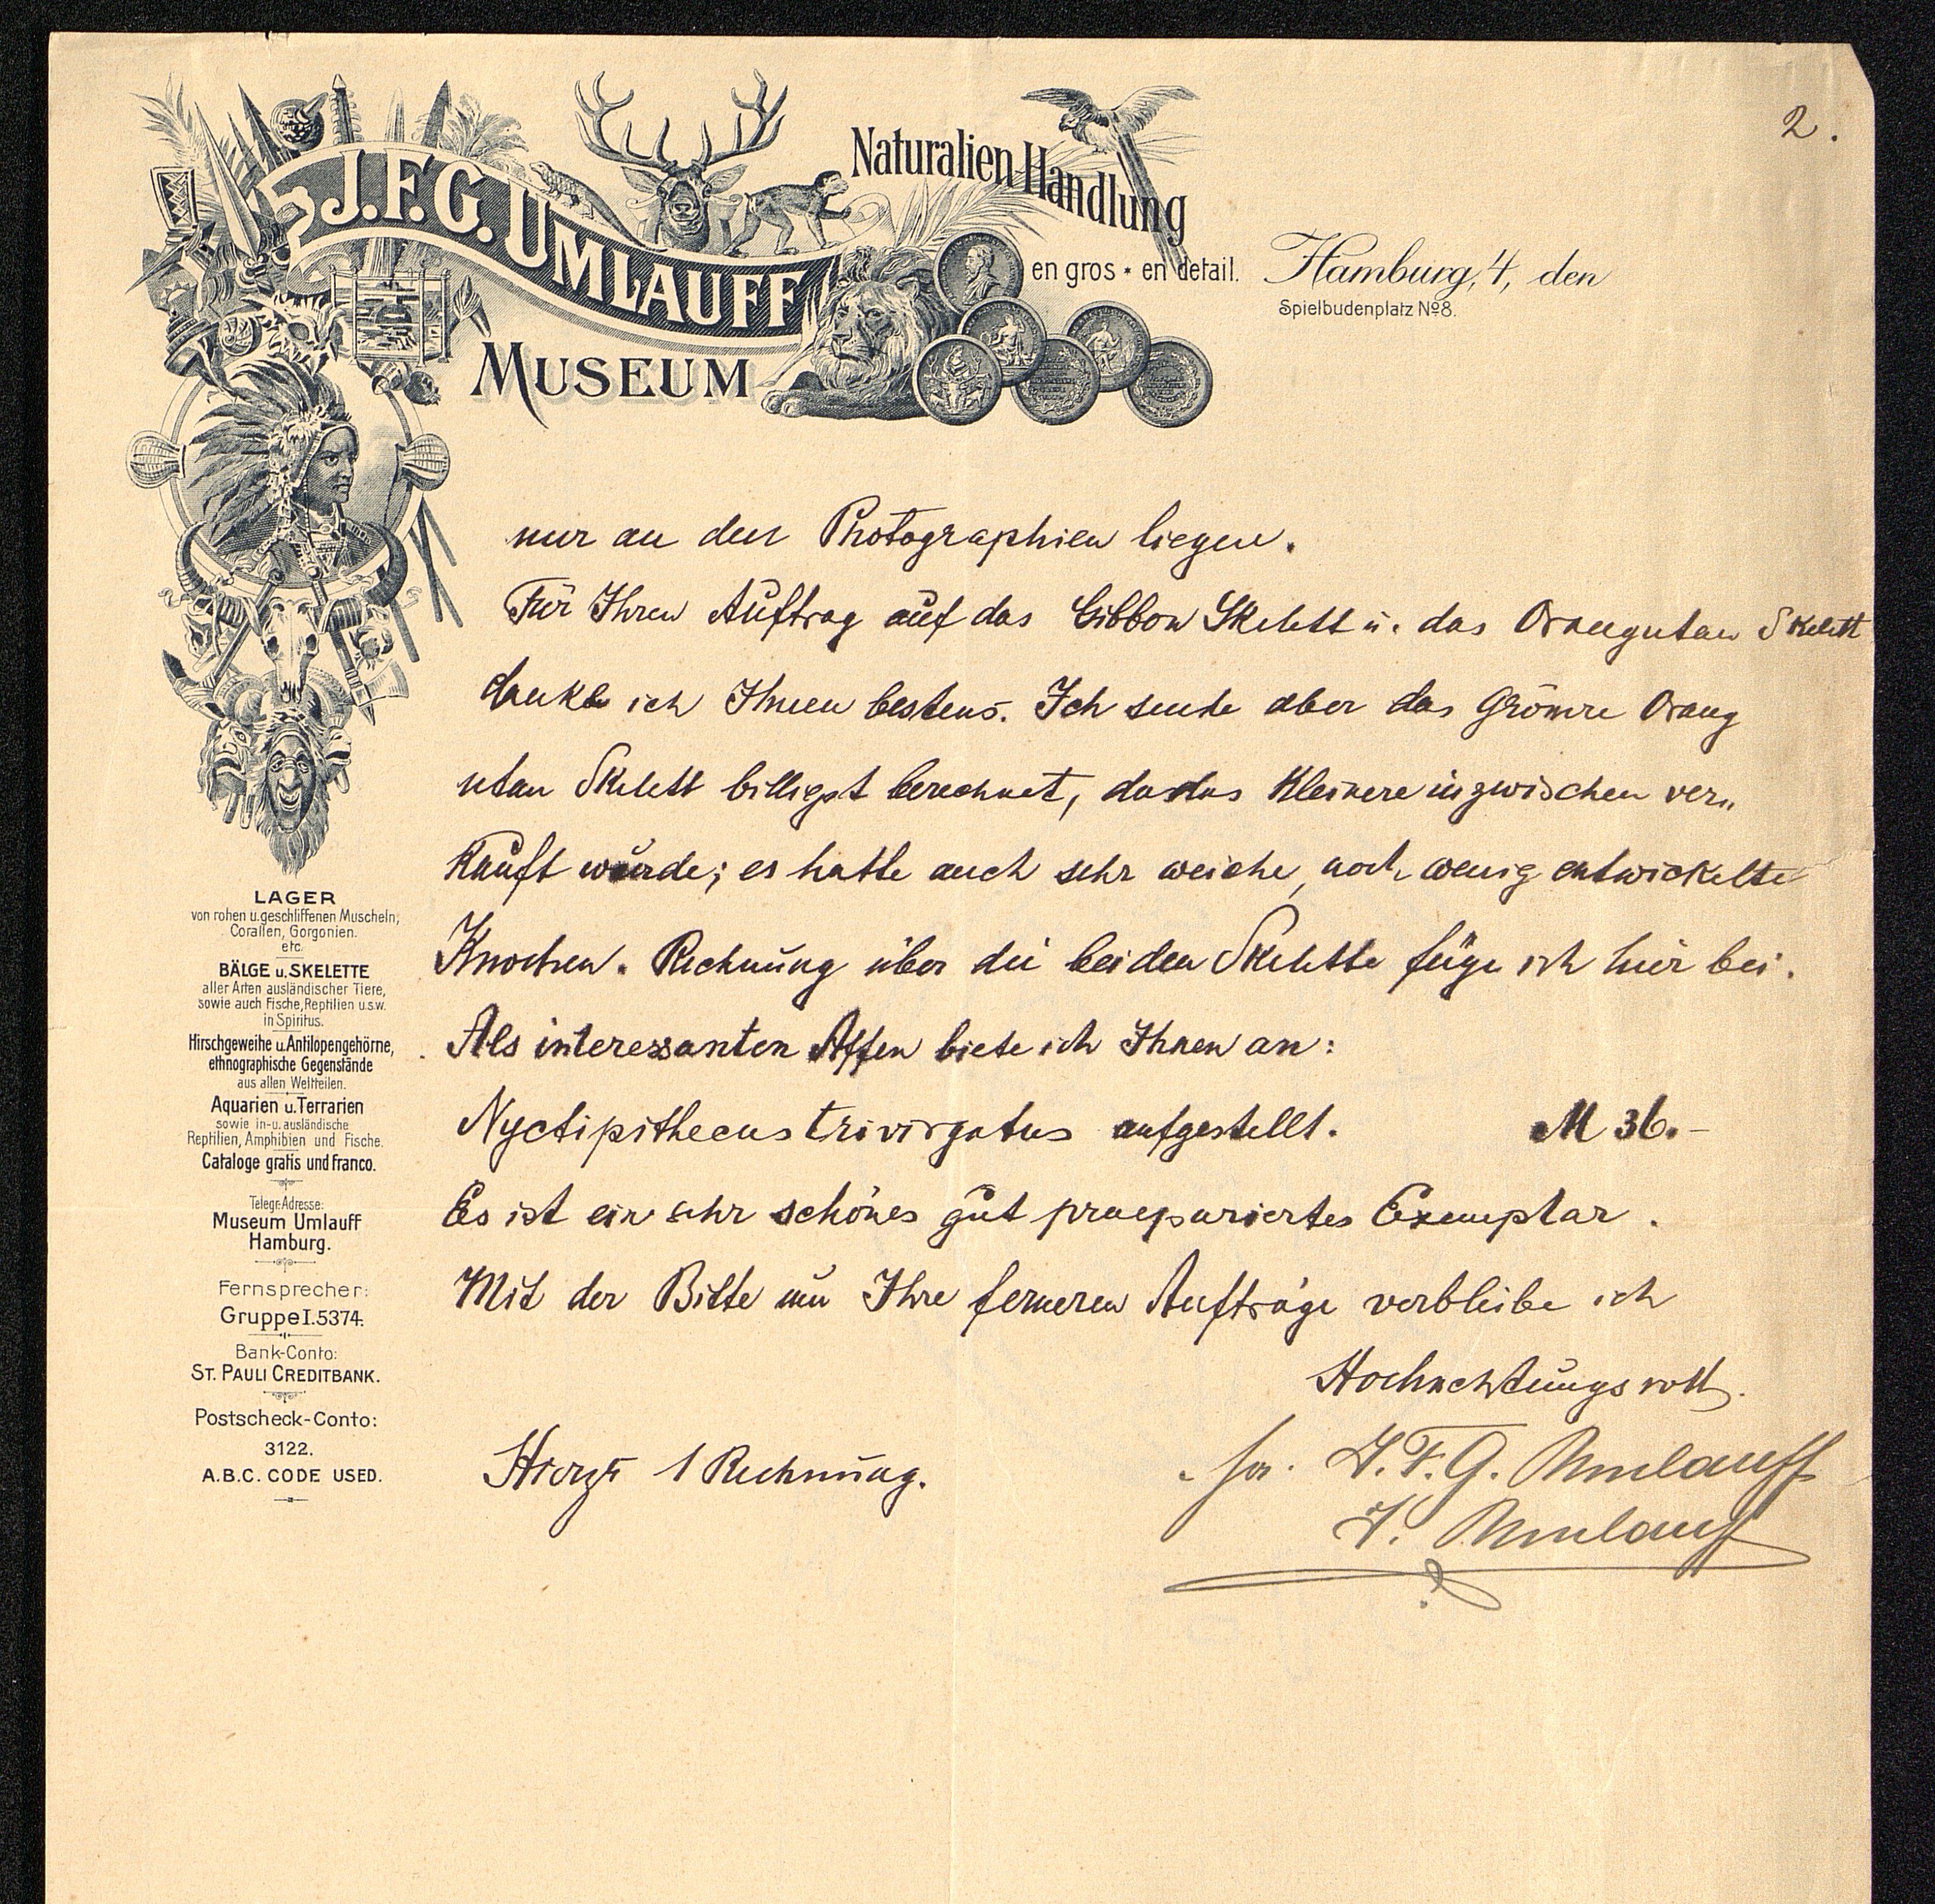 2.
J.F.G. UMLAUFF
MUSEUM
Naturalien Handlung
en gros * en detail.
Hamburg, 4, den
Spielbudenplatz No 8.
nur an den Photographien liegen.
Für Ihren Auftrag auf das Gibbon Skelett u. das Orangutan Skelett
danke ich Ihnen bestens. Ich sende aber das Grössere Orang
utan Skelett billigst berechnet, da das Kleinere inzwischen ver„
kauft wurde; es hatte auch sehr weiche, noch wenig entwickelte
Knochen. Rechnung über die beiden Skelette füge ich hier bei.
Als interessanten Affen biete ich Ihnen an:
Nyctipithecus trivirgatus aufgestellt. M 36.-
Es ist ein sehr schönes gut praepariertes Exemplar.
Mit der Bitte um Ihre ferneren Aufträge verbleibe ich
Hochachtungsvoll.
J.F.G. Umlauff
Umlauff
1 Rechnung.
LAGER
von rohen u. geschliffenen Muscheln,
Corallen, Gorgonien.
etc.
BÄLGE u. SKELETTE
aller Arten ausländischer Tiere,
sowie auch Fische, Reptilien u.s.w.
in Spiritus.
Hirschgeweihe u. Antilopengehörne,
ethnographische Gegenstände
aus allen Weltteilen.
Aquarien u. Terrarien
sowie in- u. ausländische
Reptilien, Amphibien und Fische.
Cataloge gratis und franco.
Telegr.-Adresse:
Museum Umlauff
Hamburg.
Fernsprecher:
Gruppe I. 5374.
Bank-Conto:
ST. PAULI CREDITBANK.
Postscheck-Conto:
3122.
A.B.C. CODE USED.